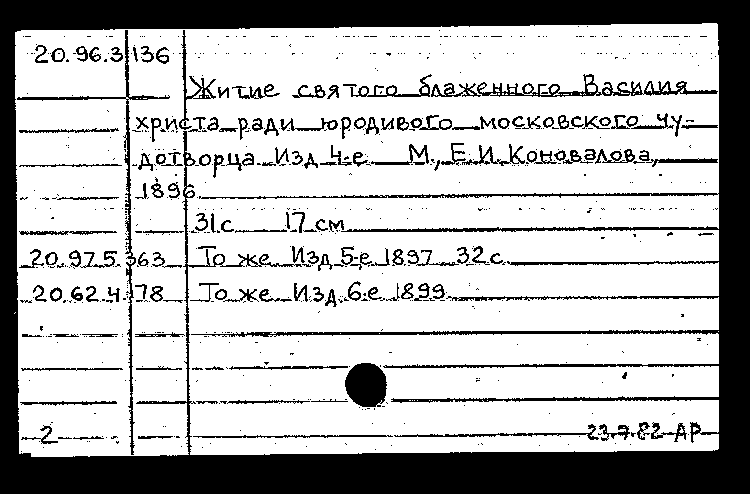 20.96.3 136
Житие святого блаженного Василия
христа ради юродивого московского чу-
дотворца Изд 4-е М., Е.И. Коновалова,
1896
31 с 17 см
20.97.5 363 То же Изд 5-е 1897 32 с
20.62.4 178 То же Изд 6-е 1899
2 23.7.82 АР